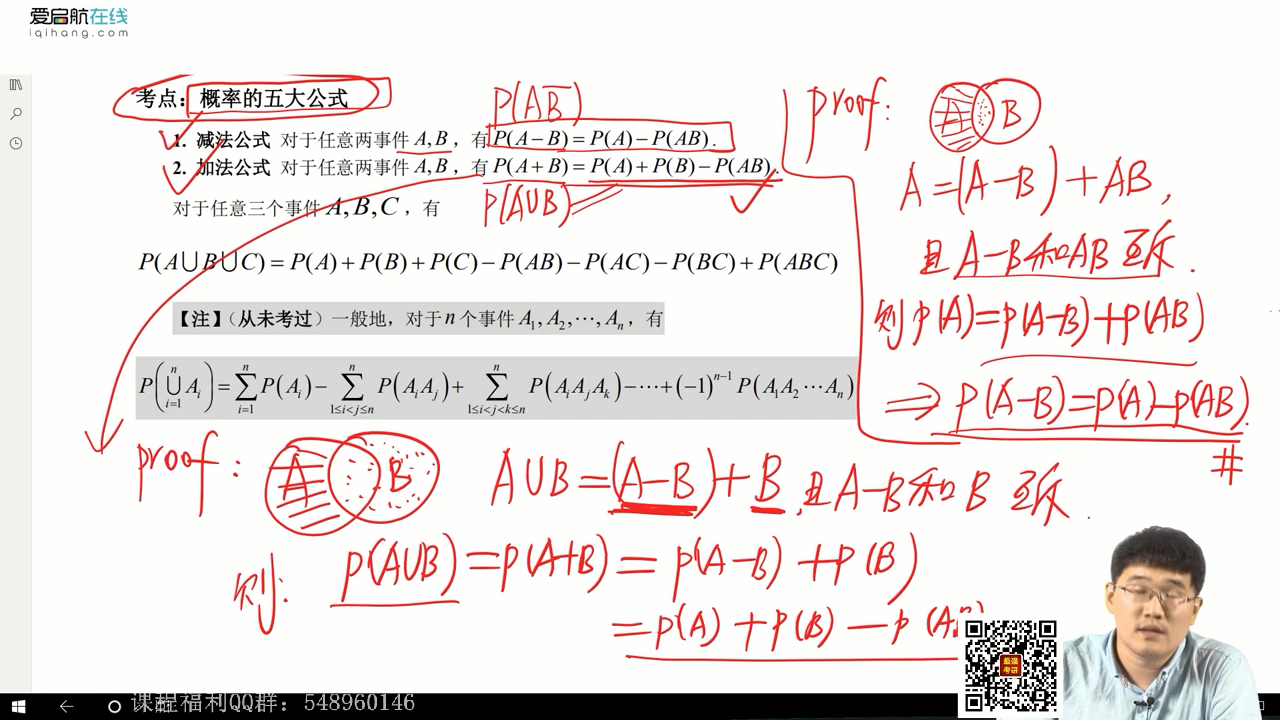 爱启航在线
iqihang.com
考点：概率的五大公式
1. 减法公式 对于任意两事件 A,B，有 P(A−B)=P(A)−P(AB).
P(AB̅)
2. 加法公式 对于任意两事件 A,B，有 P(A+B)=P(A)+P(B)−P(AB).
P(A∪B)
对于任意三个事件 A,B,C，有
P(A∪B∪C)=P(A)+P(B)+P(C)−P(AB)−P(AC)−P(BC)+P(ABC)
【注】（从未考过）一般地，对于 n 个事件 A₁,A₂,⋯,Aₙ，有
P(⋃ᵢ₌₁ⁿ Aᵢ)=∑ᵢ₌₁ⁿ P(Aᵢ)−∑_{1≤i<j≤n}ⁿ P(AᵢAⱼ)+∑_{1≤i<j<k≤n}ⁿ P(AᵢAⱼAₖ)−⋯+(−1)ⁿ⁻¹ P(A₁A₂⋯Aₙ)
proof:
A B
A=(A−B)+AB,
且 A−B和AB 互斥.
则 P(A)=P(A−B)+P(AB)
⇒ P(A−B)=P(A)−P(AB).
#
proof:
A B
A∪B=(A−B)+B, 且 A−B和B 互斥.
则: P(A∪B)=P(A+B)=P(A−B)+P(B)
=P(A)+P(B)−P(AB)
最强考研
课程福利QQ群：548960146